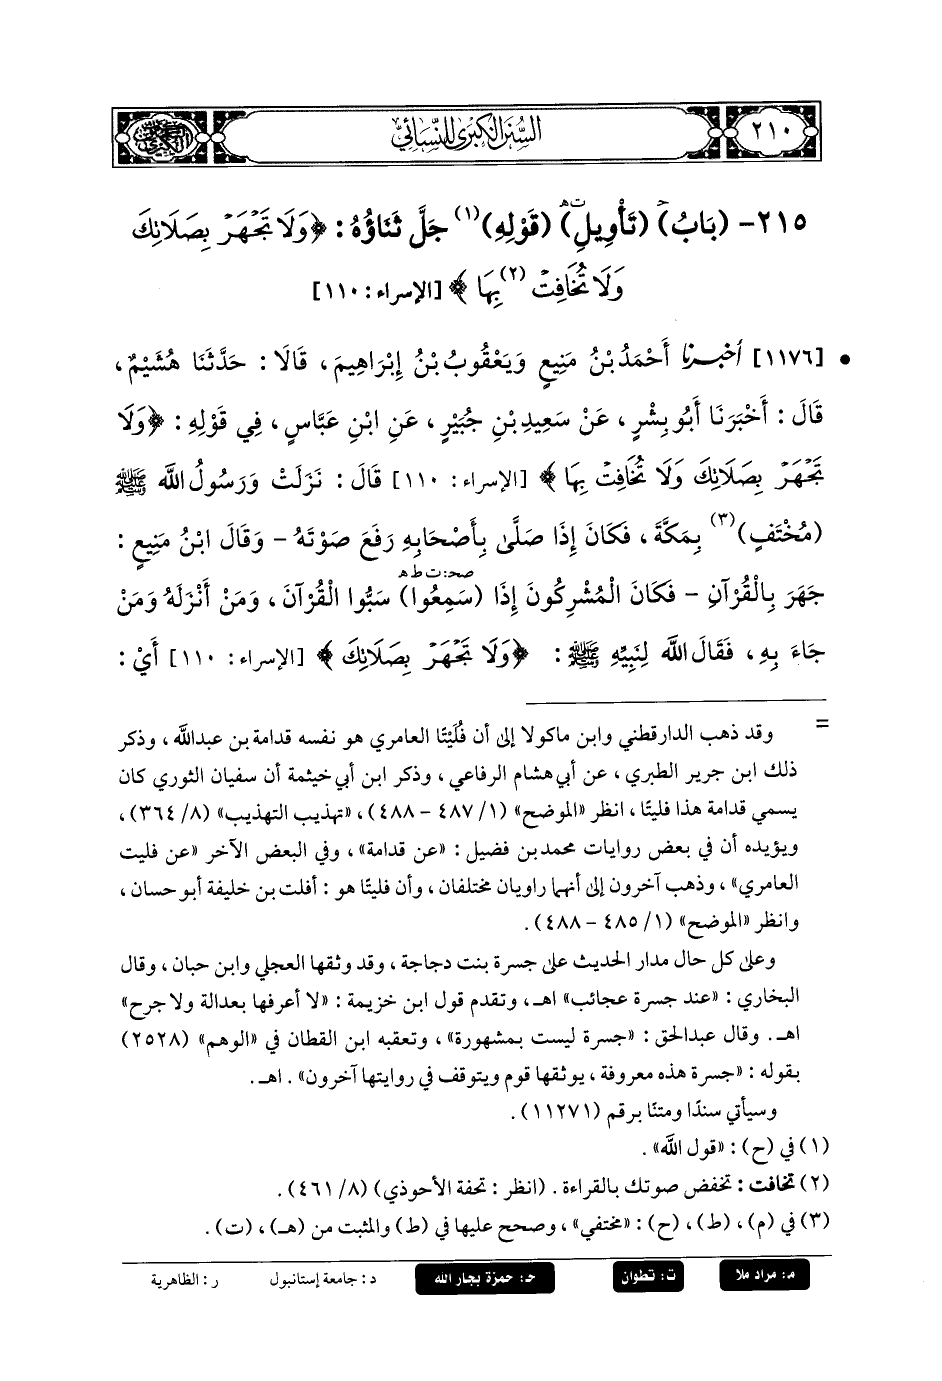 السنن الكبرى للنسائي
٢١٠
٢١٥- (بَابُ) (تَأْوِيلِ) (قَوْلِهِ)(١) جَلَّ ثَنَاؤُهُ: ﴿وَلَا تَجْهَرْ بِصَلَاتِكَ
وَلَا تُخَافِتْ(٢) بِهَا﴾ [الإسراء: ١١٠]
• [١١٧٦] أخبرنا أَحْمَدُ بْنُ مَنِيعٍ وَيَعْقُوبُ بْنُ إِبْرَاهِيمَ، قَالَا: حَدَّثَنَا هُشَيْمٌ،
قَالَ: أَخْبَرَنَا أَبُو بِشْرٍ، عَنْ سَعِيدِ بْنِ جُبَيْرٍ، عَنِ ابْنِ عَبَّاسٍ، فِي قَوْلِهِ: ﴿وَلَا
تَجْهَرْ بِصَلَاتِكَ وَلَا تُخَافِتْ بِهَا﴾ [الإسراء: ١١٠] قَالَ: نَزَلَتْ وَرَسُولُ اللَّه ﷺ
(مُخْتَفٍ)(٣) بِمَكَّةَ، فَكَانَ إِذَا صَلَّى بِأَصْحَابِهِ رَفَعَ صَوْتَهُ - وَقَالَ ابْنُ مَنِيعٍ:
جَهَرَ بِالْقُرْآنِ - فَكَانَ الْمُشْرِكُونَ إِذَا (سَمِعُوا) سَبُّوا الْقُرْآنَ، وَمَنْ أَنْزَلَهُ وَمَنْ
جَاءَ بِهِ، فَقَالَ اللَّه لِنَبِيِّهِ ﷺ: ﴿وَلَا تَجْهَرْ بِصَلَاتِكَ﴾ [الإسراء: ١١٠] أَيْ:
= وقد ذهب الدارقطني وابن ماكولا إلى أن فُلَيْتًا العامري هو نفسه قدامة بن عبدالله، وذكر
ذلك ابن جرير الطبري، عن أبي هشام الرفاعي، وذكر ابن أبي خيثمة أن سفيان الثوري كان
يسمي قدامة هذا فليتًا، انظر «الموضح» (١/ ٤٨٧ - ٤٨٨)، «تهذيب التهذيب» (٨/ ٣٦٤)،
ويؤيده أن في بعض روايات محمد بن فضيل: «عن قدامة»، وفي البعض الآخر «عن فليت
العامري»، وذهب آخرون إلى أنهما راويان مختلفان، وأن فليتًا هو: أفلت بن خليفة أبو حسان،
وانظر «الموضح» (١/ ٤٨٥ - ٤٨٨).
وعلى كل حال مدار الحديث على جسرة بنت دجاجة، وقد وثقها العجلي وابن حبان، وقال
البخاري: «عند جسرة عجائب» اهـ، وتقدم قول ابن خزيمة: «لا أعرفها بعدالة ولا جرح»
اهـ. وقال عبدالحق: «جسرة ليست بمشهورة»، وتعقبه ابن القطان في «الوهم» (٢٥٢٨)
بقوله: «جسرة هذه معروفة، يوثقها قوم ويتوقف في روايتها آخرون». اهـ.
وسيأتي سندًا ومتنًا برقم (١١٢٧١).
(١) في (ح): «قول اللَّه».
(٢) تخافت: تخفض صوتك بالقراءة. (انظر: تحفة الأحوذي) (٨/ ٤٦١).
(٣) في (م)، (ط)، (ح): «مختفي»، وصحح عليها في (ط) والمثبت من (هـ)، (ت).
م: مراد ملا ت: تطوان حـ: حمزة بجار الله د: جامعة إستانبول ر: الظاهرية